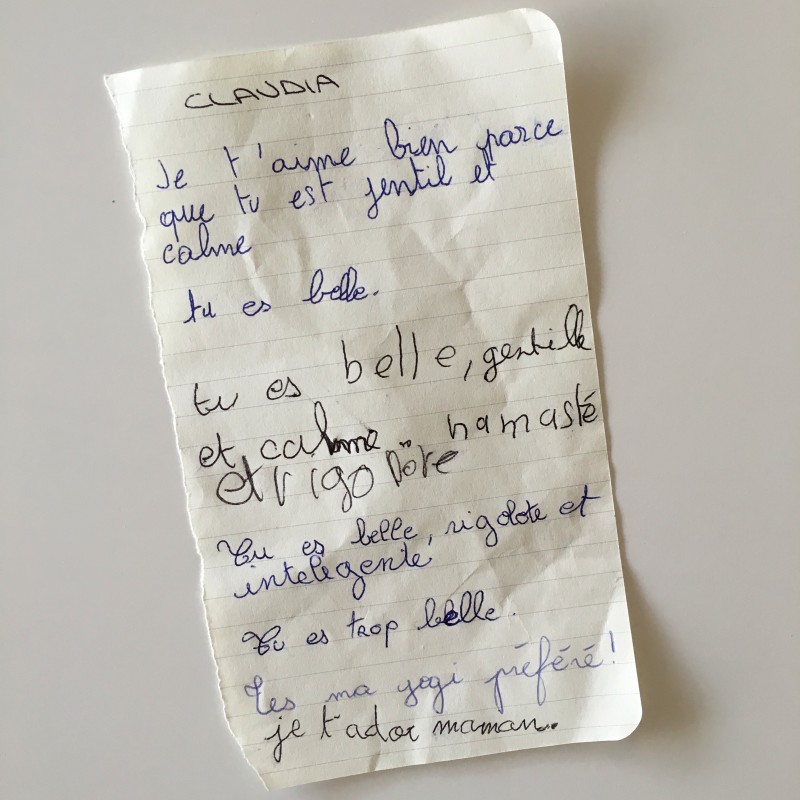 CLAUDIA
Je t'aime bien parce
que tu est jentil et
calme
tu es belle.
tu es belle, gentille
et calme namasté
et rigo
Tu es belle, rigolote et
inteligente
Tu es trop belle.
Tes ma yogi préféré!
je t'ador maman.